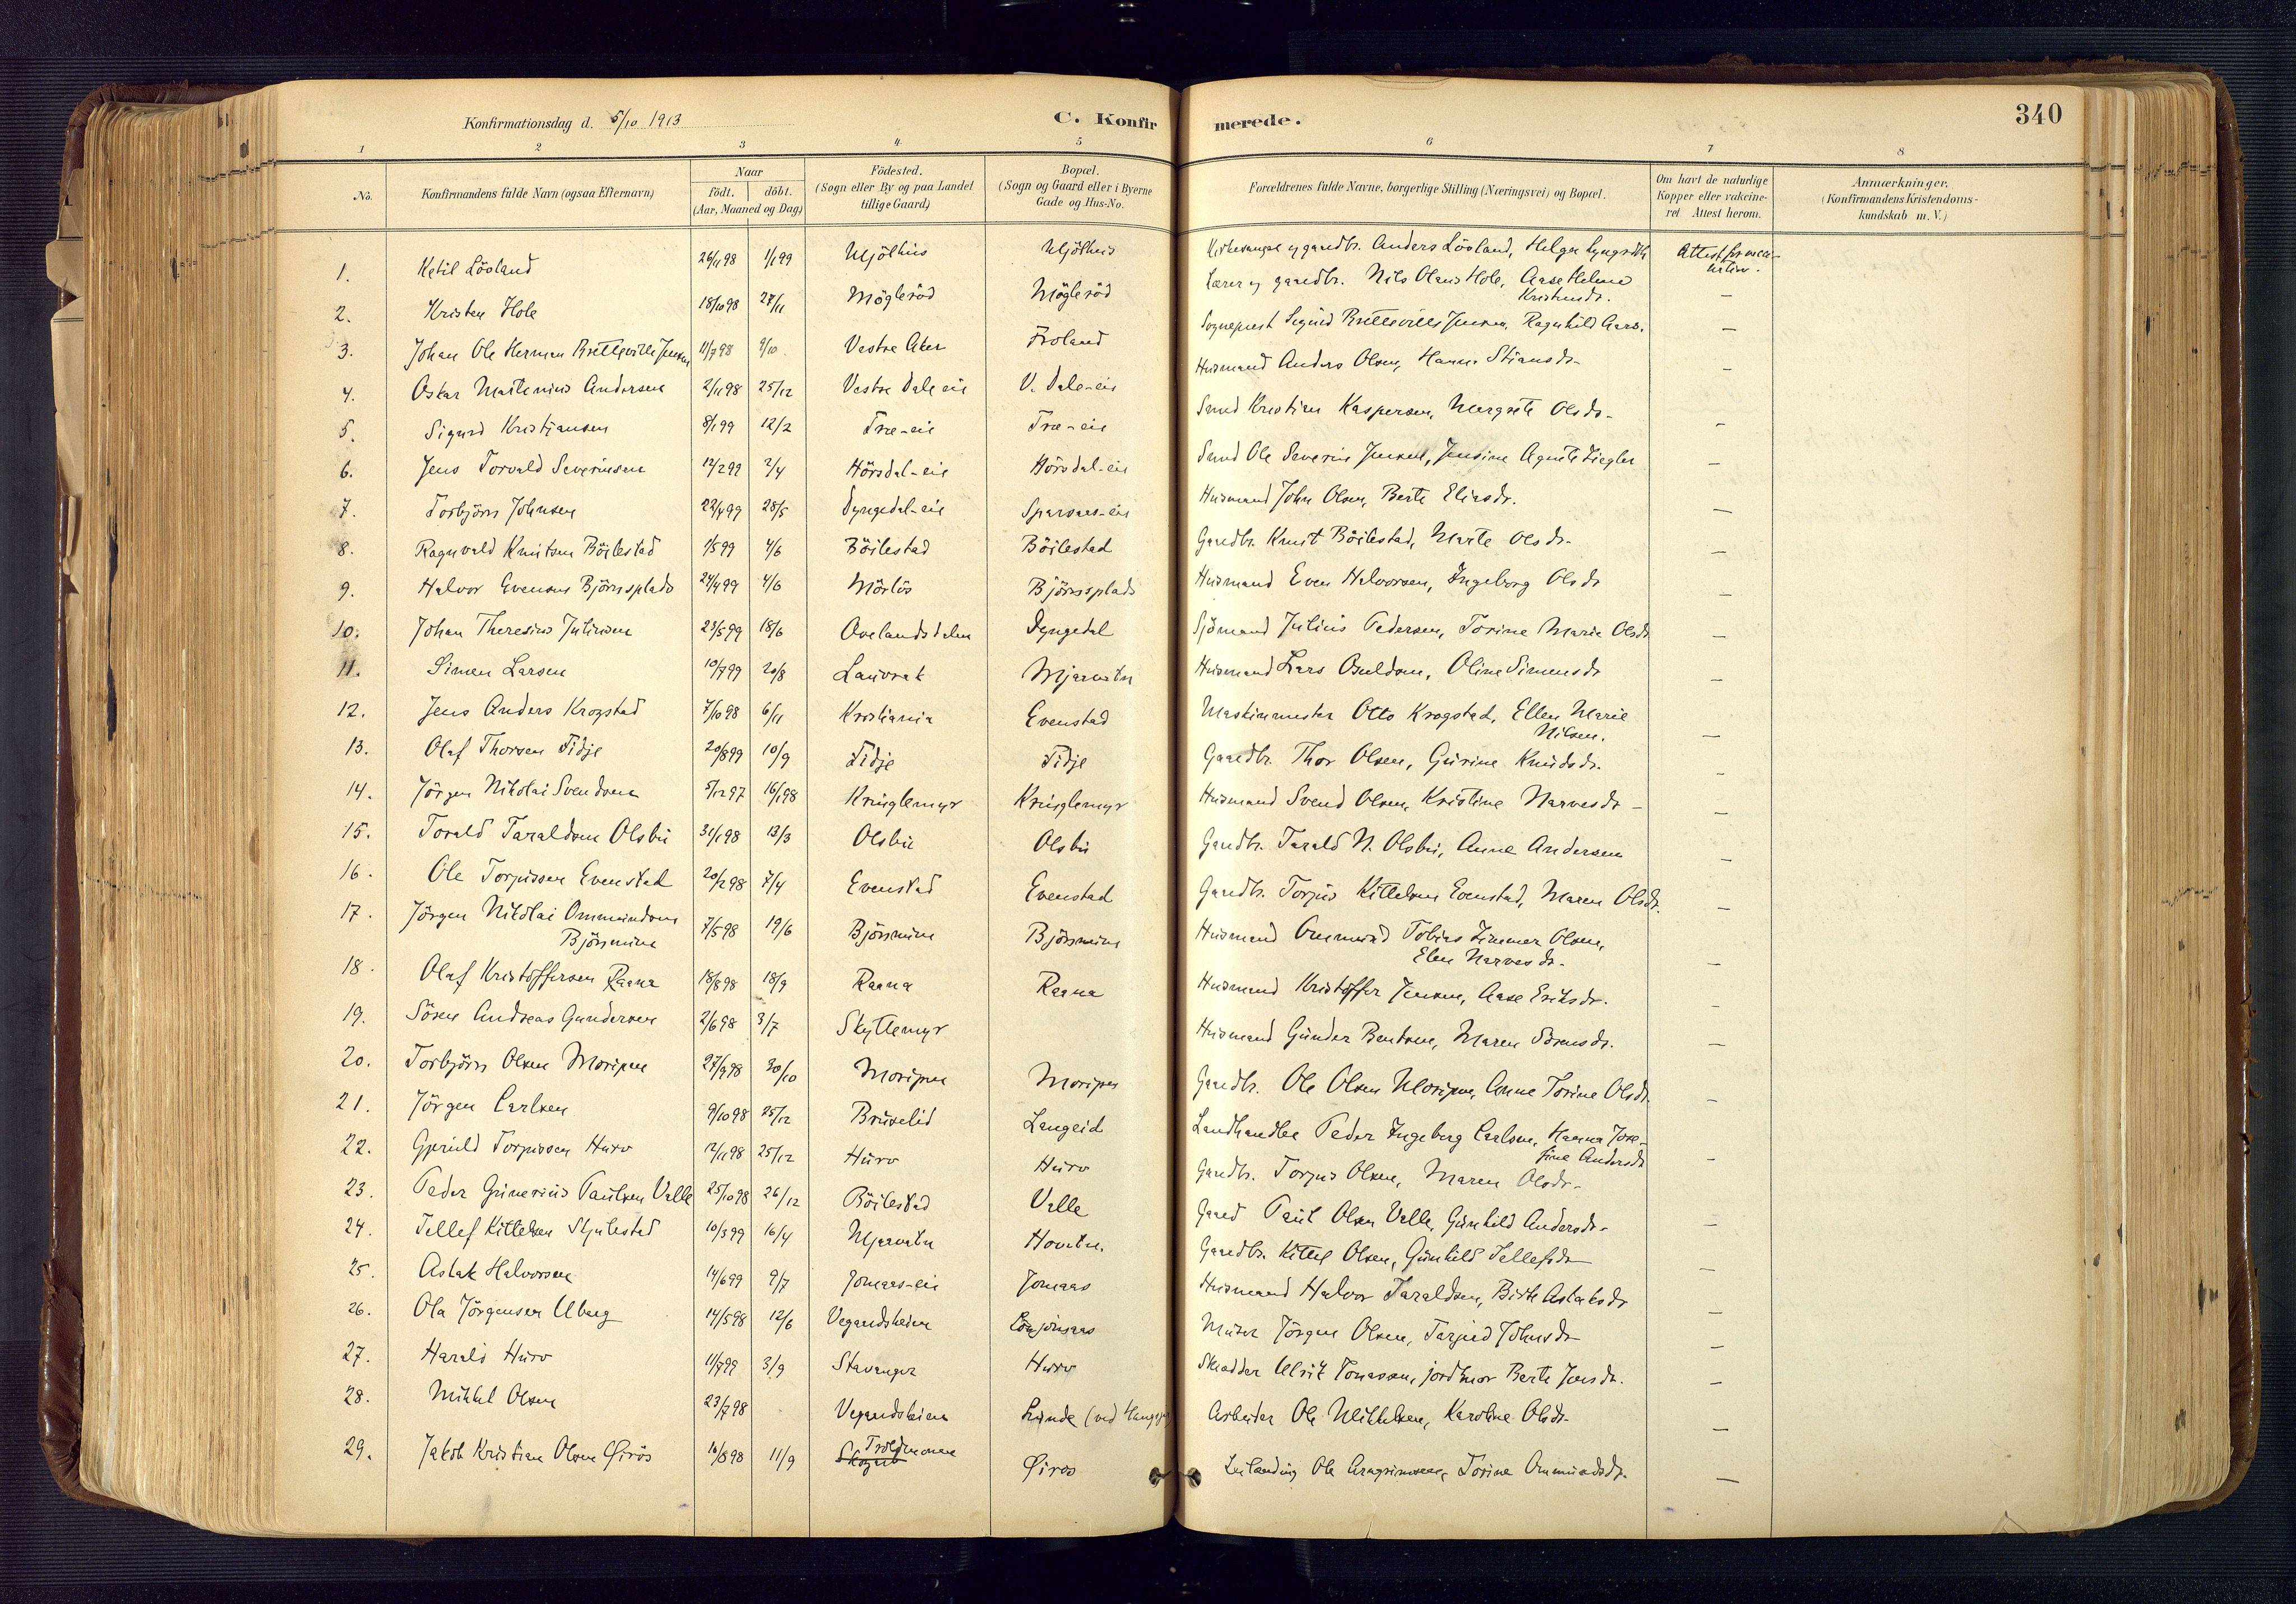 Konfirmationsdag d. 5/10 1913
C. Konfirmerede.
340
1 2 3 4 5 6 7 8
No.
Konfirmandens fulde Navn (ogsaa Efternavn)
Naar
födt. döbt.
(Aar, Maaned og Dag)
Födested.
(Sogn eller By og paa Landet
tillige Gaard)
Bopæl.
(Sogn og Gaard eller i Byerne
Gade og Hus-No.
Forældrenes fulde Navne, borgerlige Stilling (Næringsvei) og Bopæl.
Om havt de naturlige
Kopper eller vakcine-
ret Attest herom.
Anmærkninger.
(Konfirmandens Kristendoms-
kundskab m. V.)
1. Ketil Lösland 26/11 98 1/1 99 Mjölhus Mjölhus Kirkesanger og gaardbr. Anders Lösland, Helga
2. Kristen Hole 18/10 98 27/11 Mögleröd Mögleröd Lærer og gaardbr. Nils Olaus Hole, Aase Helene Kristensdr. —
3. Johan Ole Herman Brettevilles Jensen 11/7 98 9/10 Vestre Aker Froland Sogneprest Sigurd Brettevilles Jensen, Ragnhild —
4. Oskar Martenius Andersen 2/11 98 25/12 Vestre Dale eie V. Dale-eie Husmand Anders Olsen, Hanne Stiansdr. —
5. Sigurd Kristjansen 8/1 99 12/2 Træ-eie Træ-eie Smed Kristian Kaspersen, Margrete Olsdr. —
6. Jens Torvald Severinsen 12/2 99 2/4 Hörsdal-eie Hörsdal-eie Smed Ole Severin Jensen, Jensine Agnete Ziegler —
7. Torbjörn Johnsen 22/4 99 28/5 Dyngedal-eie Sparsaas-eie Husmand John Olsen, Berte Eliasdr. —
8. Ragnvald Knutsen Böilestad 1/5 99 4/6 Böilestad Böilestad Gaardbr. Knut Böilestad, Marte Olsdr. —
9. Halvor Evensen Björnsplads 24/4 99 4/6 Mörlös Björnsplads Husmand Even Halvorsen, Ingeborg Olsdr —
10. Johan Theresius Juliusen 23/5 99 18/6 Ovelandsdalen Dyngedal Sjömand Julius Pedersen, Torine Marie Olsdr —
11. Simen Larsen 10/7 99 20/8 Lauvrak Mjaavatn Husmand Lars Osuldsen, Oline Simensdr —
12. Jens Anders Krogstad 7/10 98 6/11 Kristiania Evenstad Maskinmester Otto Krogstad, Ellen Marie Nilsen. —
13. Olaf Thorsen Tidje 20/8 99 10/9 Tidje Tidje Gaardbr. Thor Olsen, Gurine Knudsdr. —
14. Jörgen Nikolai Svendsen 5/12 97 16/1 98 Kringlemyr Kringlemyr Husmand Svend Olsen, Kristine Narvesdr —
15. Torald Taraldsen Olsbu 31/1 98 13/3 Olsbu Olsbu Gaardbr. Tarald N. Olsbu, Anne Andersen —
16. Ole Torjussen Evenstad 20/2 98 7/4 Evenstad Evenstad Gaardbr. Torjus Kittelsen Evenstad, Maren Olsdr. —
17. Jörgen Nikolai Ommundsen Björnmine 7/5 98 19/6 Björnmine Björnmine Husmand Ommund Tobias Zimmer Olsen, Elen Narvesdr. —
18. Olaf Kristoffersen Raana 18/8 98 18/9 Raana Raana Husmand Kristoffer Jensen, Aase Eriksdr. —
19. Sören Andreas Gundersen 2/6 98 3/7 Skyttemyr Husmand Gunder Bentsen, Maren Sörensdr. —
20. Torbjörn Olsen Moripen 27/9 98 30/10 Moripen Moripen Gaardbr. Ole Olsen Moripen, Anne Torine Olsdr. —
21. Jörgen Carlsen 9/10 98 25/12 Bruselid Langeid Landhandler Peder Ingeberg Carlsen, Hanna Josefine Andersdr —
22. Gjeruld Torjussen Hurv 12/11 98 25/12 Hurv Hurv Gaardbr. Torjus Olsen, Maren Olsdr.
23. Peder Gunerius Paulsen Valle 25/10 98 26/12 Böilestad Valle Gaard Paul Olsen Valle, Gunhild Andersdr. —
24. Tellef Kittelsen Skjulestad 10/3 99 16/4 Mjaavatn Hovatn. Gaardbr. Kittel Olsen, Gunhild Tellefsdr —
25. Aslak Halvorsen 14/6 99 9/7 Jomaas-eie Jomaas Husmand Halvor Taraldsen, Birte Aslaksdr —
26. Ola Jörgensen Uberg 14/5 98 12/6 Vegaardsheien Murer Jörgen Olsen, Tarjerd Johnsdr —
27. Harald Hurv 11/7 99 3/9 Stavanger Hurv Skrædder Ulrik Tonassen, jordmor Berte Jensdr. —
28. Mikkel Olsen 23/7 98 Vegaardsheien Lunde (ved Arbeider Ole Mikkelsen, Karoline Olsdr. —
29. Jakob Kristian Olsen Öirös 16/8 98 11/9 Öiros Leilending Ole Torine Ommundsdr. —